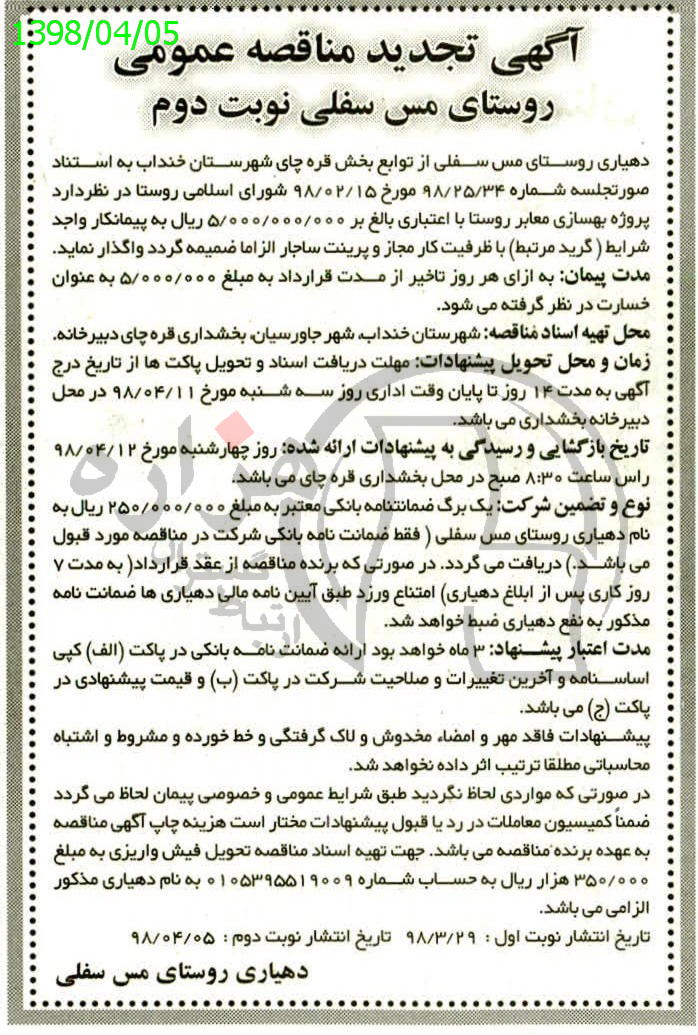 1398/04/05
آگهی تجدید مناقصه عمومی
روستای مس سفلی نوبت دوم
دهیاری روستای مس سفلی از توابع بخش قره چای شهرستان خنداب به استناد
صورتجلسه شماره ۹۸/۲۵/۳۴ مورخ ۹۸/۰۲/۱۵ شورای اسلامی روستا در نظردارد
پروژه بهسازی معابر روستا با اعتباری بالغ بر ۵/۰۰۰/۰۰۰/۰۰۰ ریال به پیمانکار واجد
شرایط ( گرید مرتبط) با ظرفیت کار مجاز و پرینت ساجار الزاما ضمیمه گردد واگذار نماید.
مدت پیمان: به ازای هر روز تاخیر از مدت قرارداد به مبلغ ۵/۰۰۰/۰۰۰ به عنوان
خسارت در نظر گرفته می شود.
محل تهیه اسناد مناقصه: شهرستان خنداب، شهر جاورسیان، بخشداری قره چای دبیرخانه.
زمان و محل تحویل پیشنهادات: مهلت دریافت اسناد و تحویل پاکت ها از تاریخ درج
آگهی به مدت ۱۴ روز تا پایان وقت اداری روز سه شنبه مورخ ۹۸/۰۴/۱۱ در محل
دبیرخانه بخشداری می باشد.
تاریخ بازگشایی و رسیدگی به پیشنهادات ارائه شده: روز چهارشنبه مورخ ۹۸/۰۴/۱۲
راس ساعت ۸:۳۰ صبح در محل بخشداری قره چای می باشد.
نوع و تضمین شرکت: یک برگ ضمانتنامه بانکی معتبر به مبلغ ۲۵۰/۰۰۰/۰۰۰ ریال به
نام دهیاری روستای مس سفلی ( فقط ضمانت نامه بانکی شرکت در مناقصه مورد قبول
می باشد.) دریافت می گردد. در صورتی که برنده مناقصه از عقد قرارداد( به مدت ۷
روز کاری پس از ابلاغ دهیاری) امتناع ورزد طبق آیین نامه مالی دهیاری ها ضمانت نامه
مذکور به نفع دهیاری ضبط خواهد شد.
مدت اعتبار پیشنهاد: ۳ ماه خواهد بود ارائه ضمانت نامه بانکی در پاکت (الف) کپی
اساسنامه و آخرین تغییرات و صلاحیت شرکت در پاکت (ب) و قیمت پیشنهادی در
پاکت (ج) می باشد.
پیشنهادات فاقد مهر و امضاء مخدوش و لاک گرفتگی و خط خورده و مشروط و اشتباه
محاسباتی مطلقا ترتیب اثر داده نخواهد شد.
در صورتی که مواردی لحاظ نگردید طبق شرایط عمومی و خصوصی پیمان لحاظ می گردد
ضمناً کمیسیون معاملات در رد یا قبول پیشنهادات مختار است هزینه چاپ آگهی مناقصه
به عهده برنده مناقصه می باشد. جهت تهیه اسناد مناقصه تحویل فیش واریزی به مبلغ
۳۵۰/۰۰۰ هزار ریال به حساب شماره ۰۱۰۵۳۹۵۵۱۹۰۰۹ به نام دهیاری مذکور
الزامی می باشد.
تاریخ انتشار نوبت اول : ۹۸/۳/۲۹ تاریخ انتشار نوبت دوم : ۹۸/۰۴/۰۵
دهیاری روستای مس سفلی
هزاره
گسترش
ارتباط